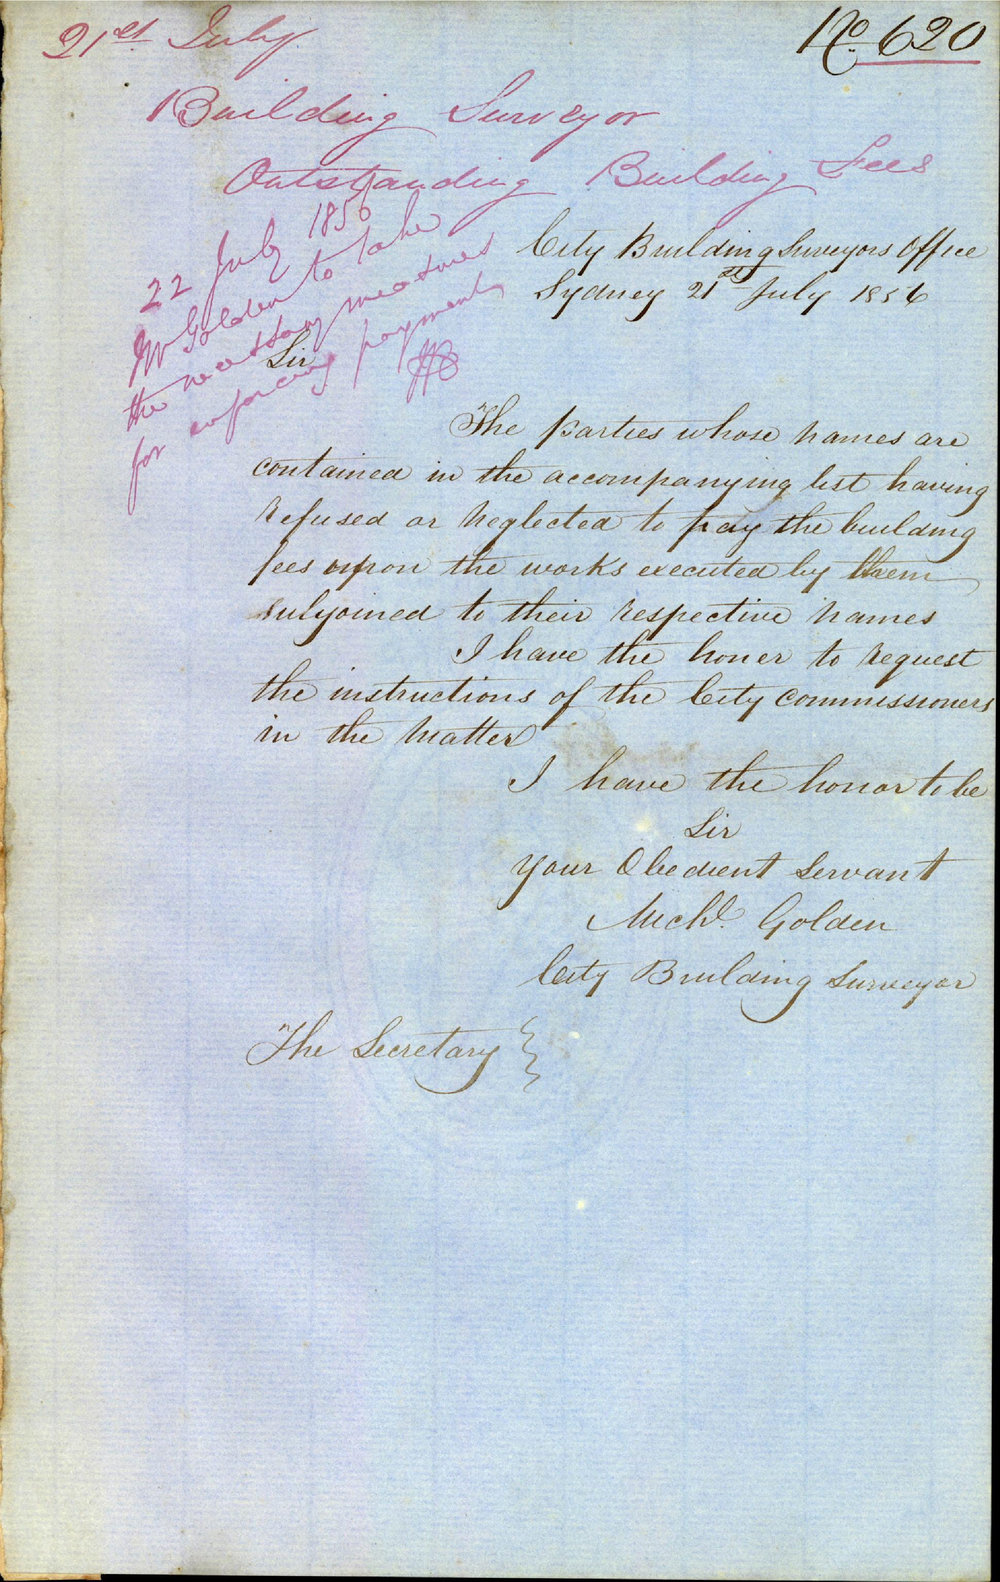 21st July
No. 620
Building Surveyor
Outstanding Building Fees
22 July 1856
Mr Golden to take
the necessary measures
for enforcing payment
City Building Surveyors Office
Sydney 21st July 1856
Sir
The parties whose names are
contained in the accompanying list having
refused or neglected to pay the building
fees upon the works executed by them
subjoined to their respective names
I have the honer to request
the instructions of the City Commissioners
in the matter
I have the honor to be
Sir
Your Obedient Servant
Michl. Golden
City Building Surveyor
The Secretary }